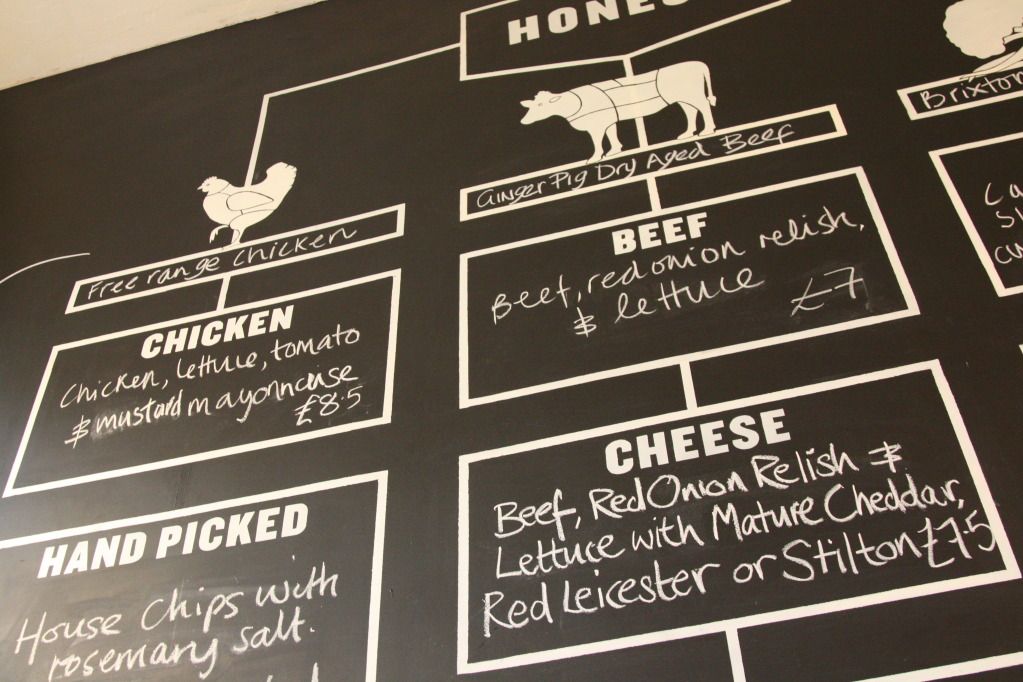 HONES
Ginger Pig Dry Aged Beef
Brixton
Free range chicken
CHICKEN
Chicken, lettuce, tomato
& mustard mayonnaise
£8.5
BEEF
Beef, red onion relish,
& lettuce £7
CHEESE
Beef, Red Onion Relish &
Lettuce with Mature Cheddar,
Red Leicester or Stilton £7.5
HAND PICKED
House Chips with
rosemary salt.